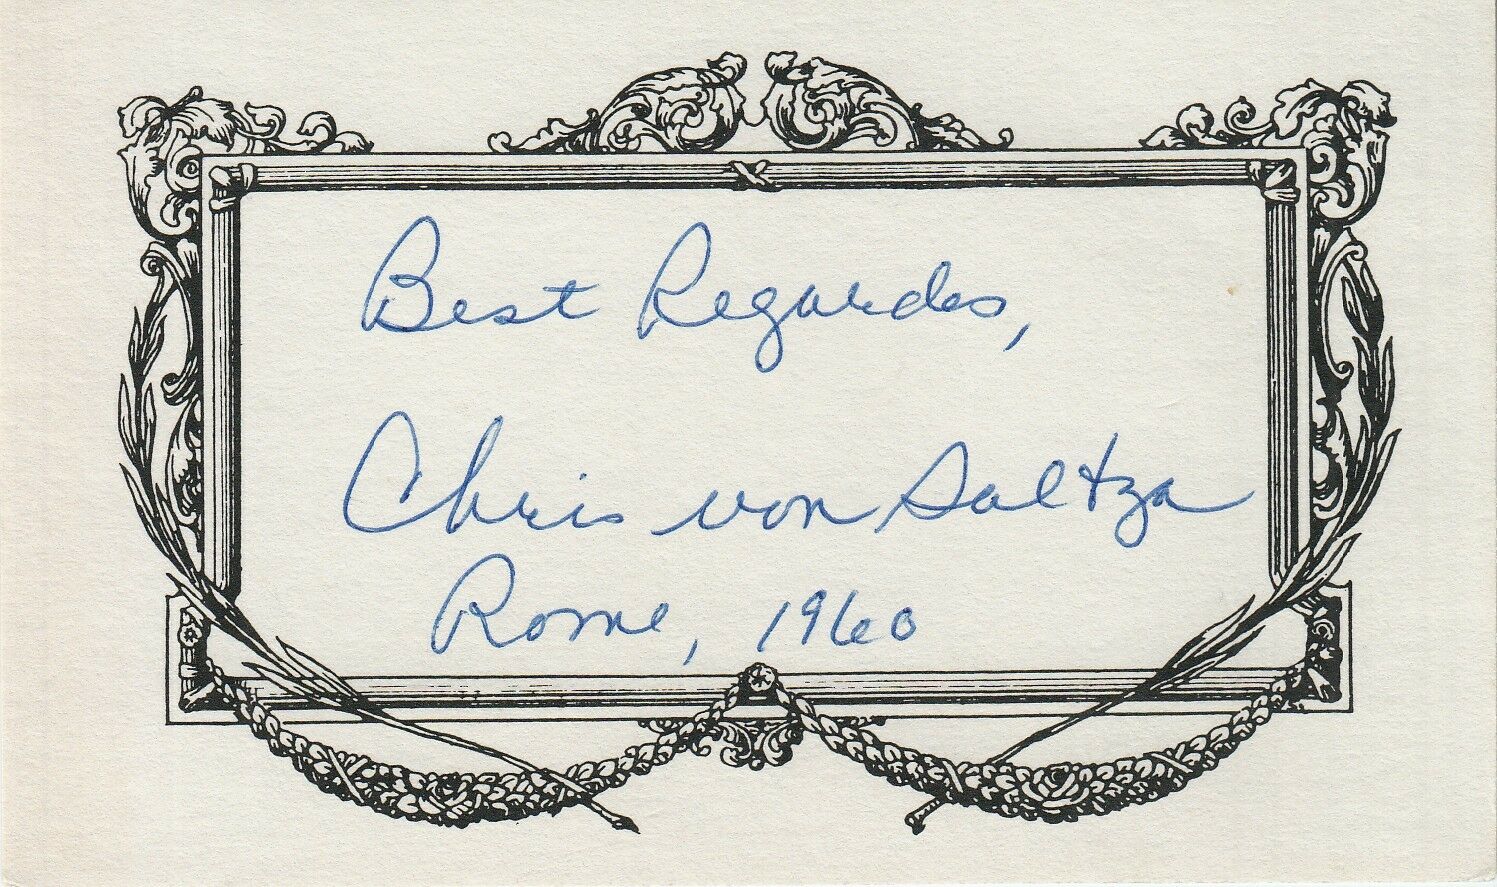 Best Regards,
Chris von Saltza
Rome, 1960